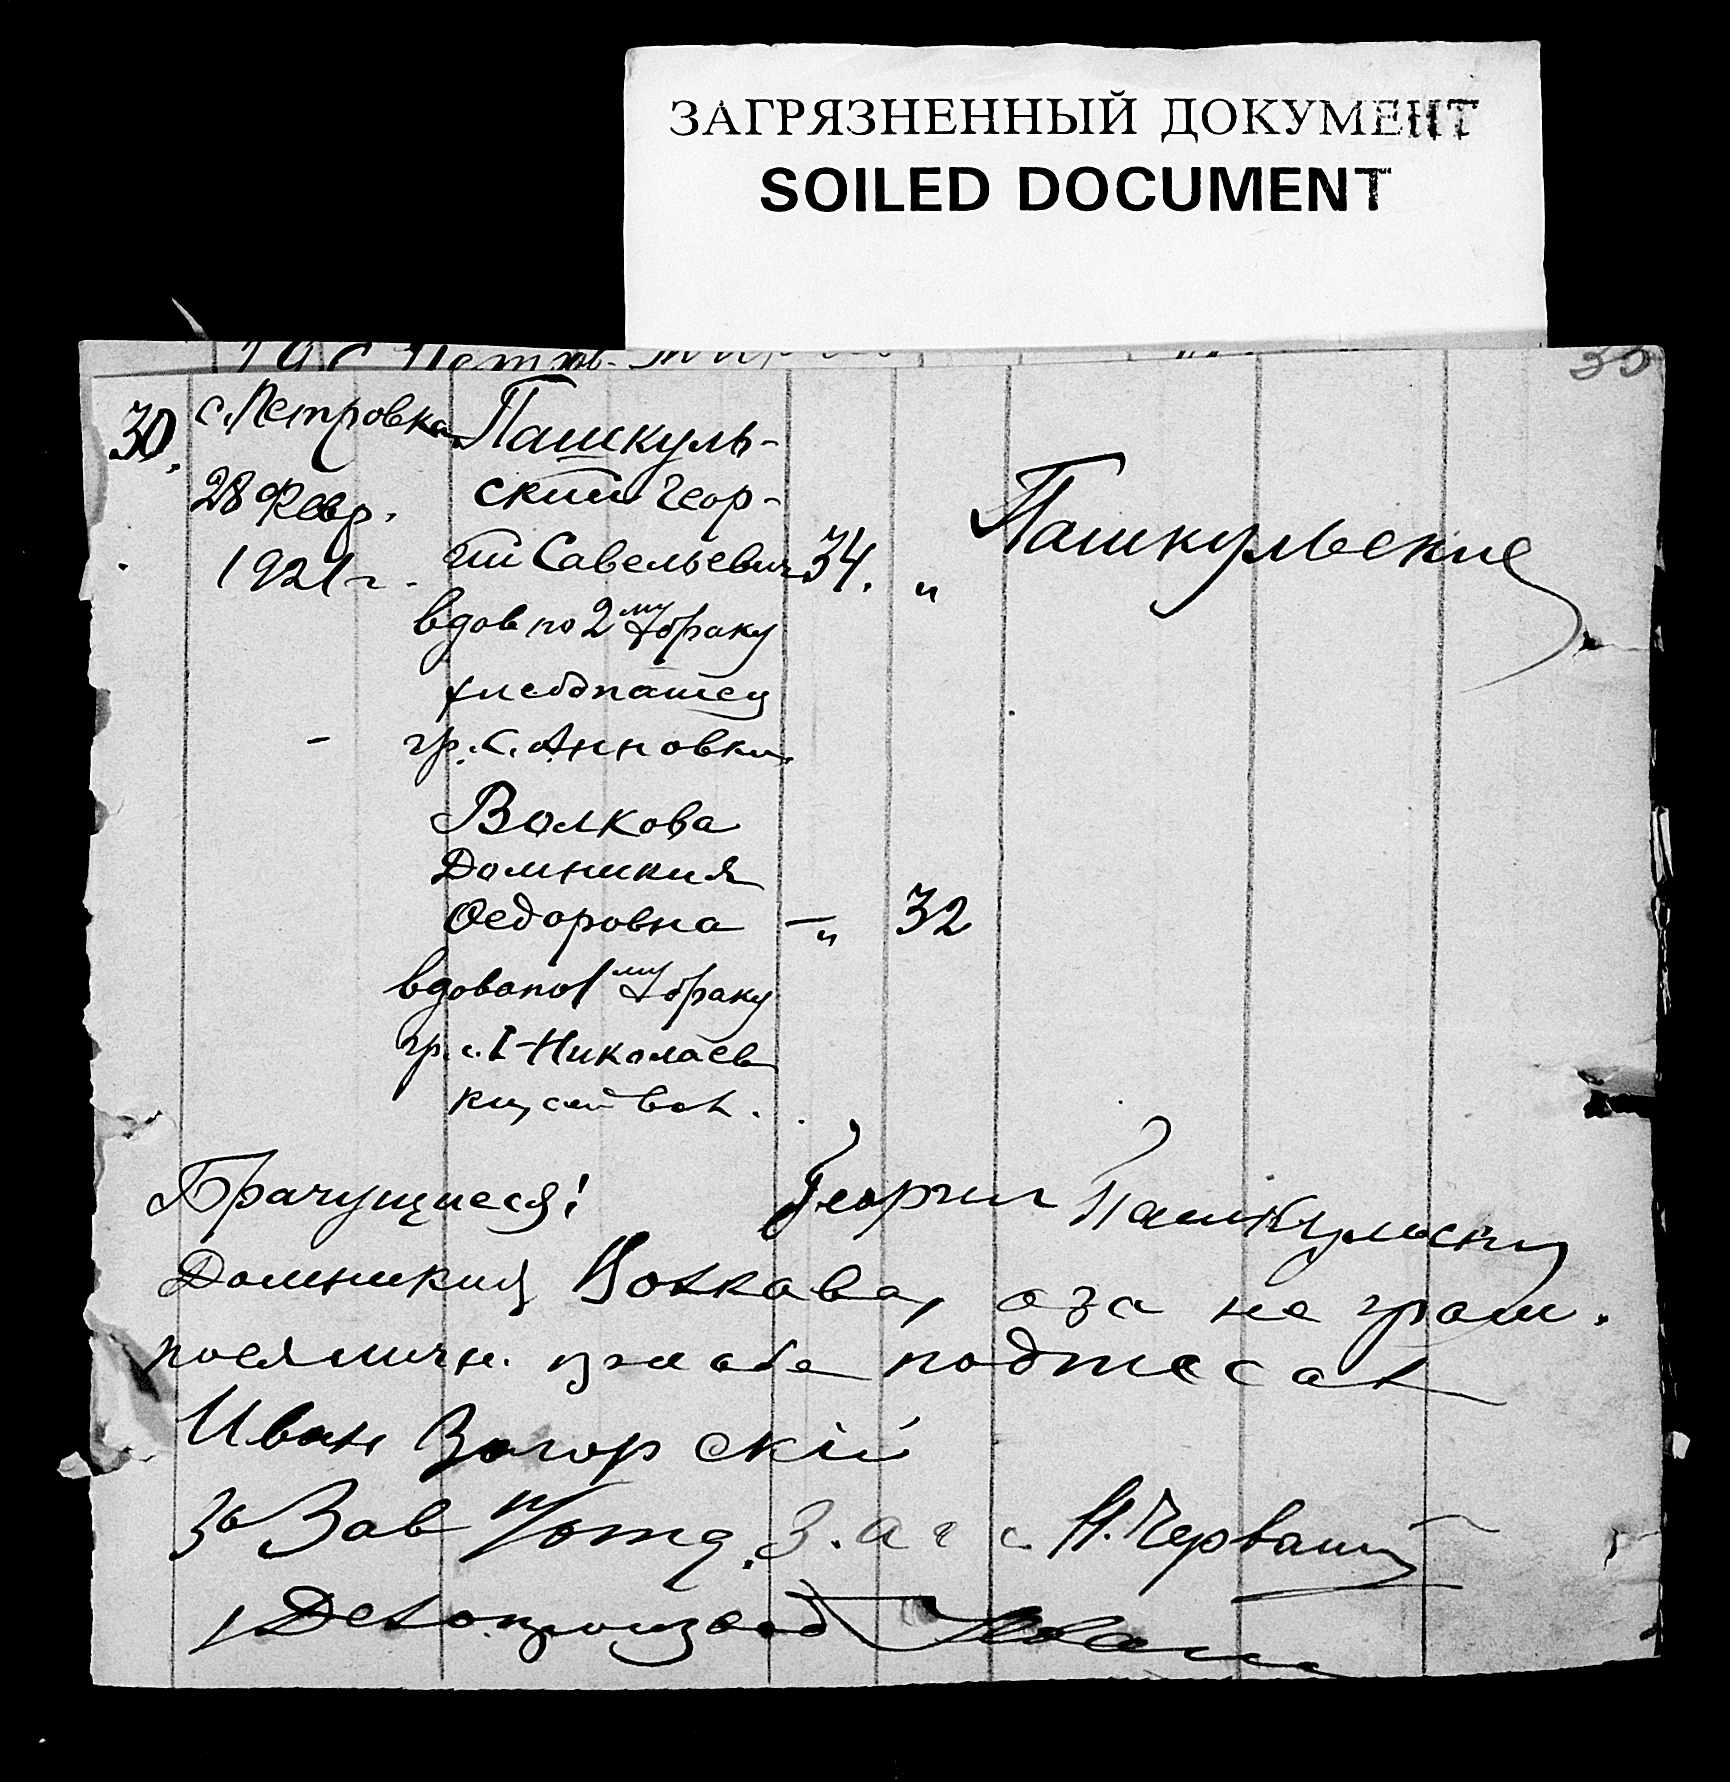 ЗАГРЯЗНЕННЫЙ ДОКУМЕНТ
SOILED DOCUMENT
30
30.
с. Петровка
28 Февр.
1921 г.
Пашкуль-
ский Геор-
гий Савельевич
34. "
Пашкульские
вдов по 2му браку
хлебопашец
гр. с. Анновки
Волкова
Домникия
Федоровна
— " 32
вдова по 1му браку
гр. с. I-Николаев
ки, сей вол.
Брачущиеся: Георгий Пашкульский
Домникия Волкова, а за не грам.
по ея личн. просьбе подписал
Иван Загорскій
За Зав п/отд. З.а г с Н. Червап
Делопроизвод